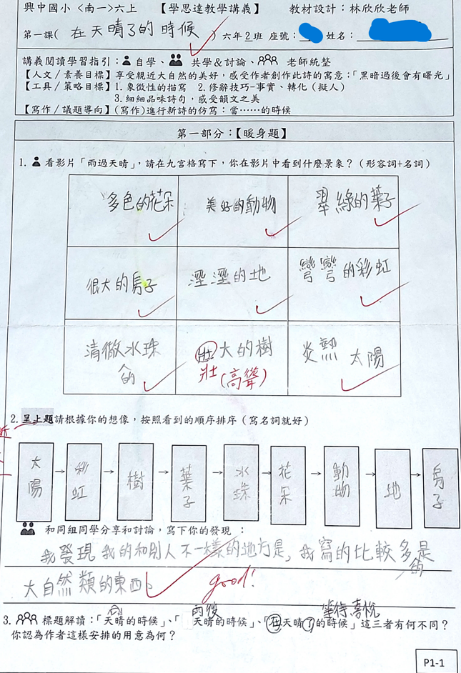 興中國小 <南一>六上 【學思達教學講義】 教材設計：林欣欣老師
第一課( 在天晴了的時候 ) 六年 2 班 座號： 姓名：
講義閱讀學習指引： 自學、 共學&討論、 老師統整
【人文/素養目標】享受親近大自然的美好，感受作者創作此詩的寓意：「黑暗過後會有曙光」
【工具/策略目標】1.象徵性的描寫 2.修辭技巧-事實、轉化（擬人）
3.細細品味詩句，感受韻文之美
【寫作/議題導向】(寫作)進行新詩的仿寫：當……的時候
第一部分：【暖身題】
1. 看影片「雨過天晴」，請在九宮格寫下，你在影片中看到什麼景象？（形容詞+名詞）
多色的花朵 美好的動物 翠綠的葉子
很大的房子 溼溼的地 彎彎的彩虹
清澈水珠 壯大的樹 炎熱 太陽
的 壯(高聳)
2. 呈上題請根據你的想像，按照看到的順序排序（寫名詞就好）
太陽 彩虹 樹 葉子 水珠 花朵 動物 地 房子
和同組同學分享和討論，寫下你的發現：
我發現我的和別人不一樣的地方是，我寫的比較多是
大自然類的東西。 good!
3. 標題解讀：「天晴的時候」、「天晴的時候」、「在天晴了的時候」這三者有何不同？
你認為作者這樣安排的用意為何？
P1-1